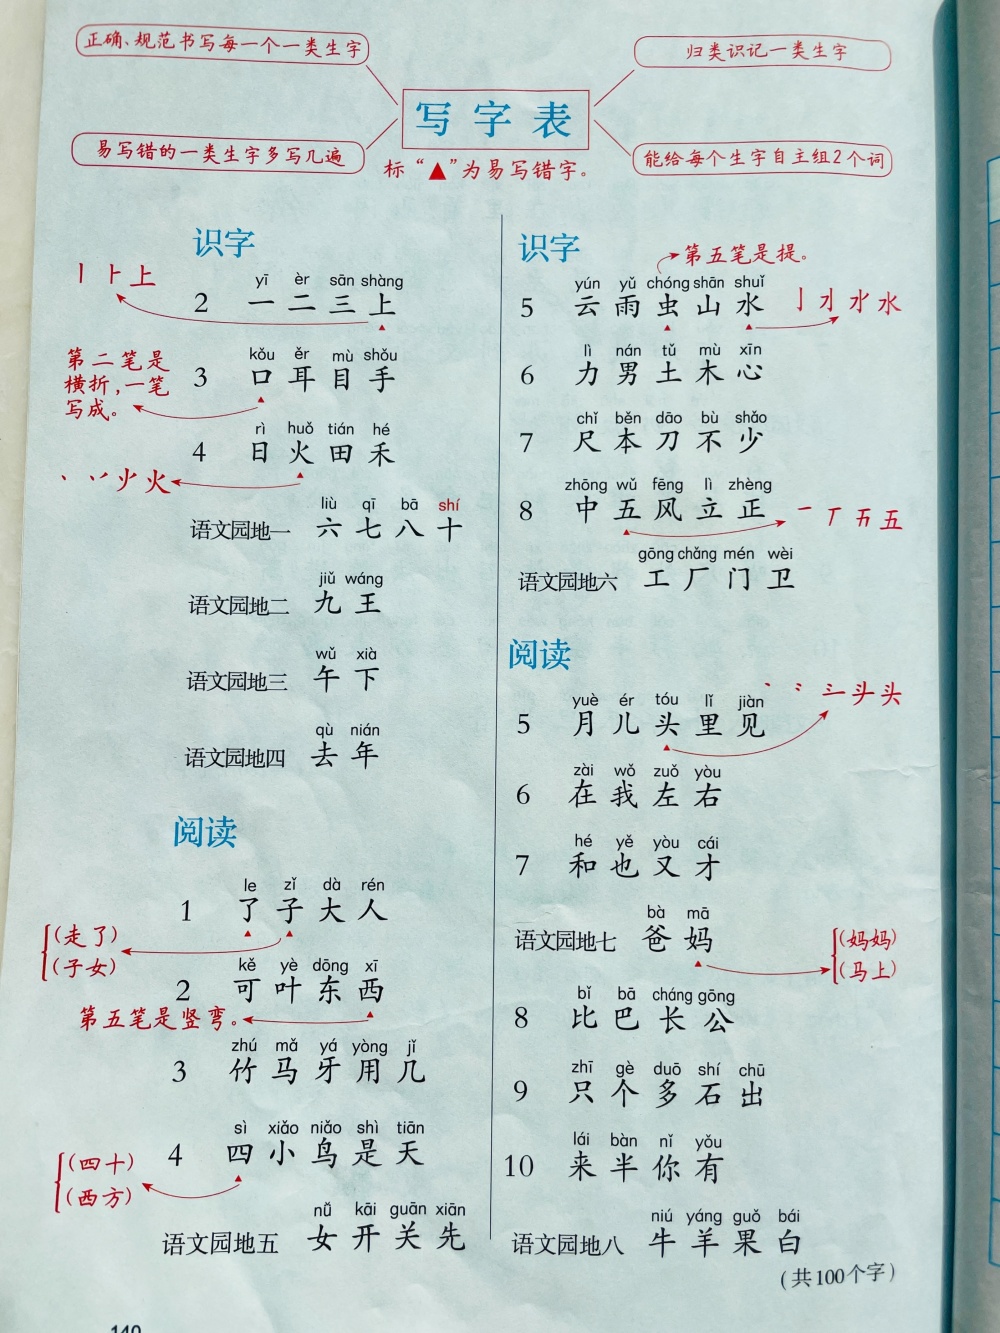 正确、规范书写每一个一类生字
归类识记一类生字
写字表
易写错的一类生字多写几遍
能给每个生字自主组2个词
标“▲”为易写错字。
识字
丨 ⺊ 上
yī èr sān shàng
2 一 二 三 上
第二笔是
横折,一笔
写成。
kǒu ěr mù shǒu
3 口 耳 目 手
rì huǒ tián hé
4 日 火 田 禾
丶 丷 火 火
liù qī bā shí
语文园地一 六 七 八 十
jiǔ wáng
语文园地二 九 王
wǔ xià
语文园地三 午 下
qù nián
语文园地四 去 年
阅读
le zǐ dà rén
1 了 子 大 人
(走了)
(子女)
kě yè dōng xī
2 可 叶 东 西
第五笔是竖弯。
zhú mǎ yá yòng jǐ
3 竹 马 牙 用 几
sì xiǎo niǎo shì tiān
4 四 小 鸟 是 天
(四十)
(西方)
nǚ kāi guān xiān
语文园地五 女 开 关 先
识字
第五笔是提。
yún yǔ chóng shān shuǐ
5 云 雨 虫 山 水
亅 水 水
lì nán tǔ mù xīn
6 力 男 土 木 心
chǐ běn dāo bù shǎo
7 尺 本 刀 不 少
zhōng wǔ fēng lì zhèng
8 中 五 风 立 正
一 丁 五 五
gōng chǎng mén wèi
语文园地六 工 厂 门 卫
阅读
丶 ⺀ 头 头
yuè ér tóu lǐ jiàn
5 月 儿 头 里 见
zài wǒ zuǒ yòu
6 在 我 左 右
hé yě yòu cái
7 和 也 又 才
bà mā
语文园地七 爸 妈
(妈妈)
(马上)
bǐ bā cháng gōng
8 比 巴 长 公
zhī gè duō shí chū
9 只 个 多 石 出
lái bàn nǐ yǒu
10 来 半 你 有
niú yáng guǒ bái
语文园地八 牛 羊 果 白
(共100个字)
140